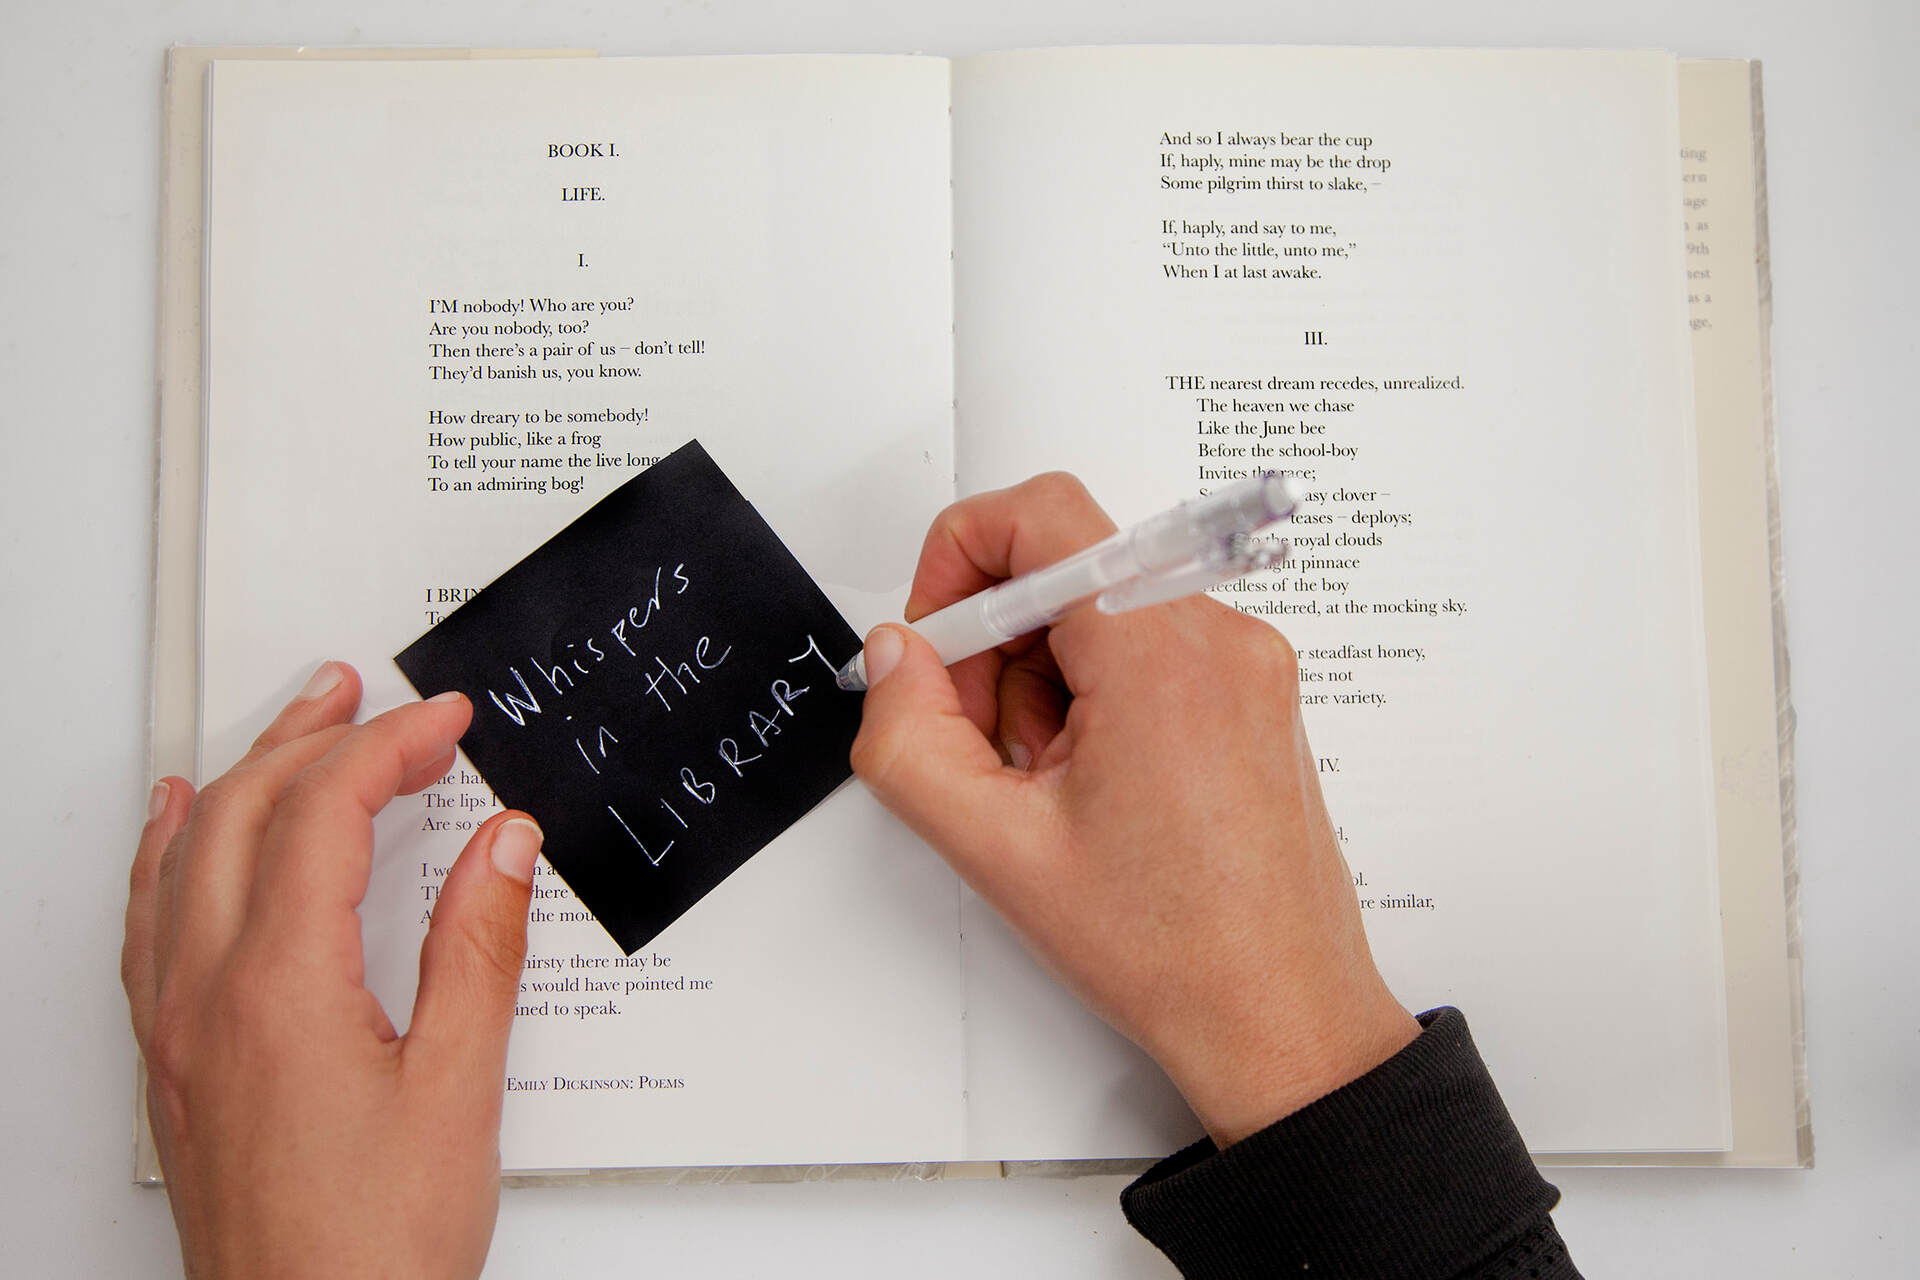 BOOK I.
LIFE.
I.
I'M nobody! Who are you?
Are you nobody, too?
Then there's a pair of us – don't tell!
They'd banish us, you know.
How dreary to be somebody!
How public, like a frog
To tell your name the live long
To an admiring bog!
I
The lips
Are so
I
the
thirsty there may be
would have pointed me
to speak.
EMILY DICKINSON: POEMS
Whispers
in the
LIBRARY
And so I always bear the cup
If, haply, mine may be the drop
Some pilgrim thirst to slake, –
If, haply, and say to me,
“Unto the little, unto me,”
When I at last awake.
III.
THE nearest dream recedes, unrealized.
The heaven we chase
Like the June bee
Before the school-boy
Invites the race;
clover –
teases – deploys;
the royal clouds
pinnace
Heedless of the boy
bewildered, at the mocking sky.
steadfast honey,
not
rare variety.
IV.
similar,
as
9th
as a